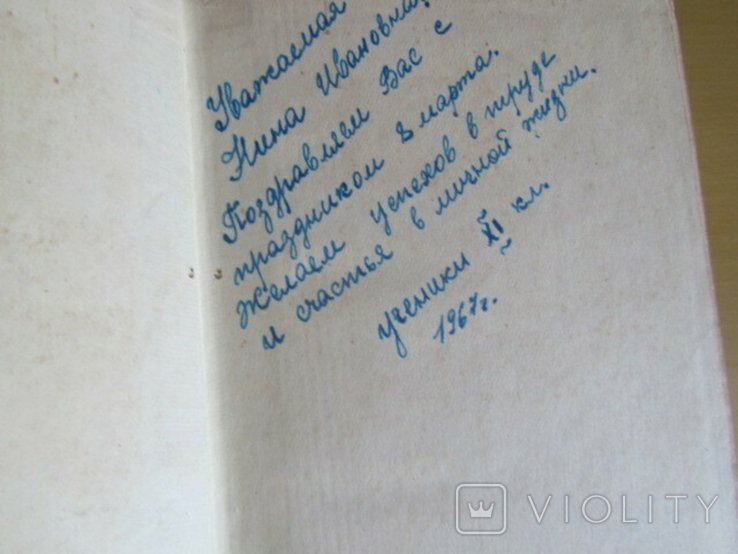 Уважаемая
Нина Ивановна,
Поздравляем Вас с
праздником 8 марта.
Желаем успехов в труде
и счастья в личной жизни.
ученики XI кл.
1967г.
VIOLITY